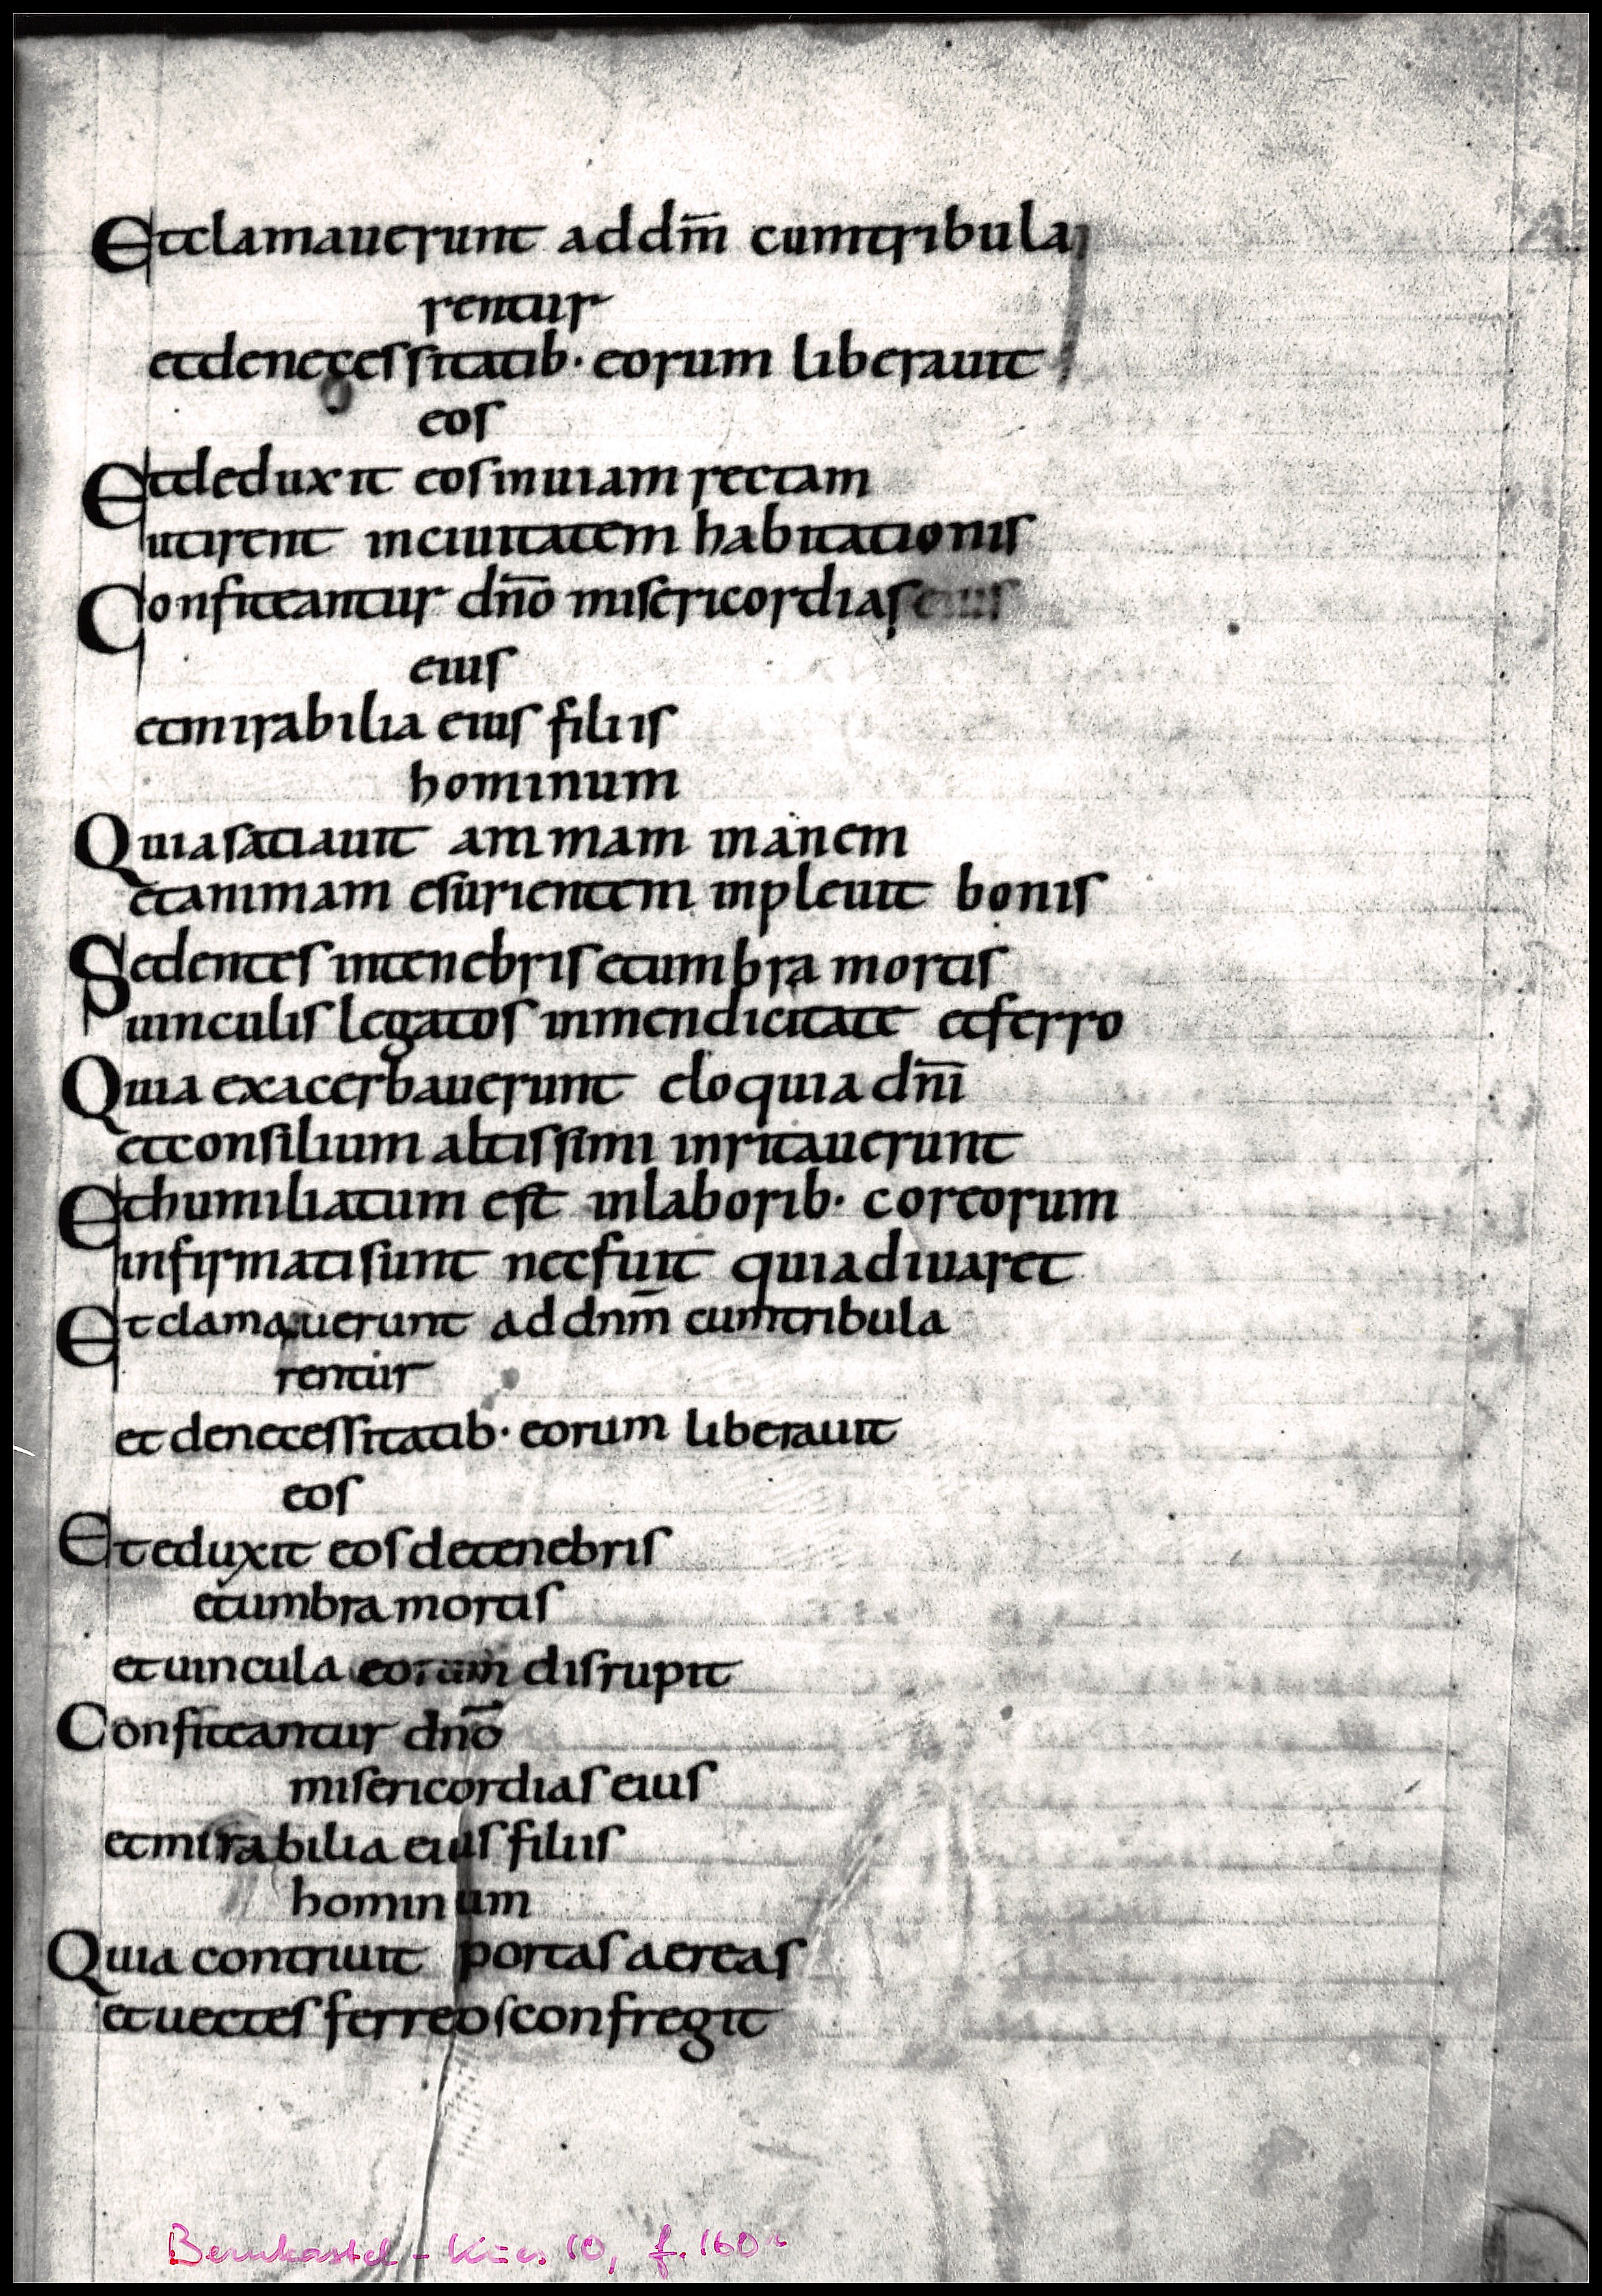 Etclamauerunt addm̄ cumtribula
rentur
etdenecessitatib· eorum liberauit
eos
Etdeduxit eosinuiam rectam
utirent inciuitatem habitationis
Confiteantur dn̄o misericordias eius
eius
etmirabilia eius filiis
hominum
Quiasatiauit animam inanem
etanimam esurientem inpleuit bonis
Sedentes intenebris etumbra mortis
uinculis legatos inmendicitate etferro
Quia exacerbauerunt eloquia dn̄i
etconsilium altissimi inritauerunt
Ethumiliatum est inlaborib· coreorum
infirmatisunt necfuit quiadiuaret
Etclamauerunt ad dnm̄ cumtribula
rentur
et denecessitatib· eorum liberauit
eos
Eteduxit eos detenebris
etumbra mortis
etuincula eorum disrupit
Confiteantur dn̄o
misericordias eius
etmirabilia eius filiis
hominum
Quia contriuit portas aereas
etuectes ferreos confregit
Bernkastel-Kues 10, f. 160r